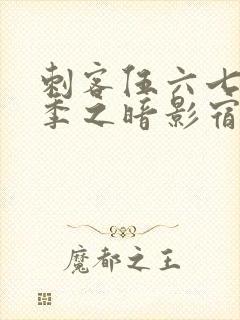 刺客伍六七
季之暗影宿
魔都之王